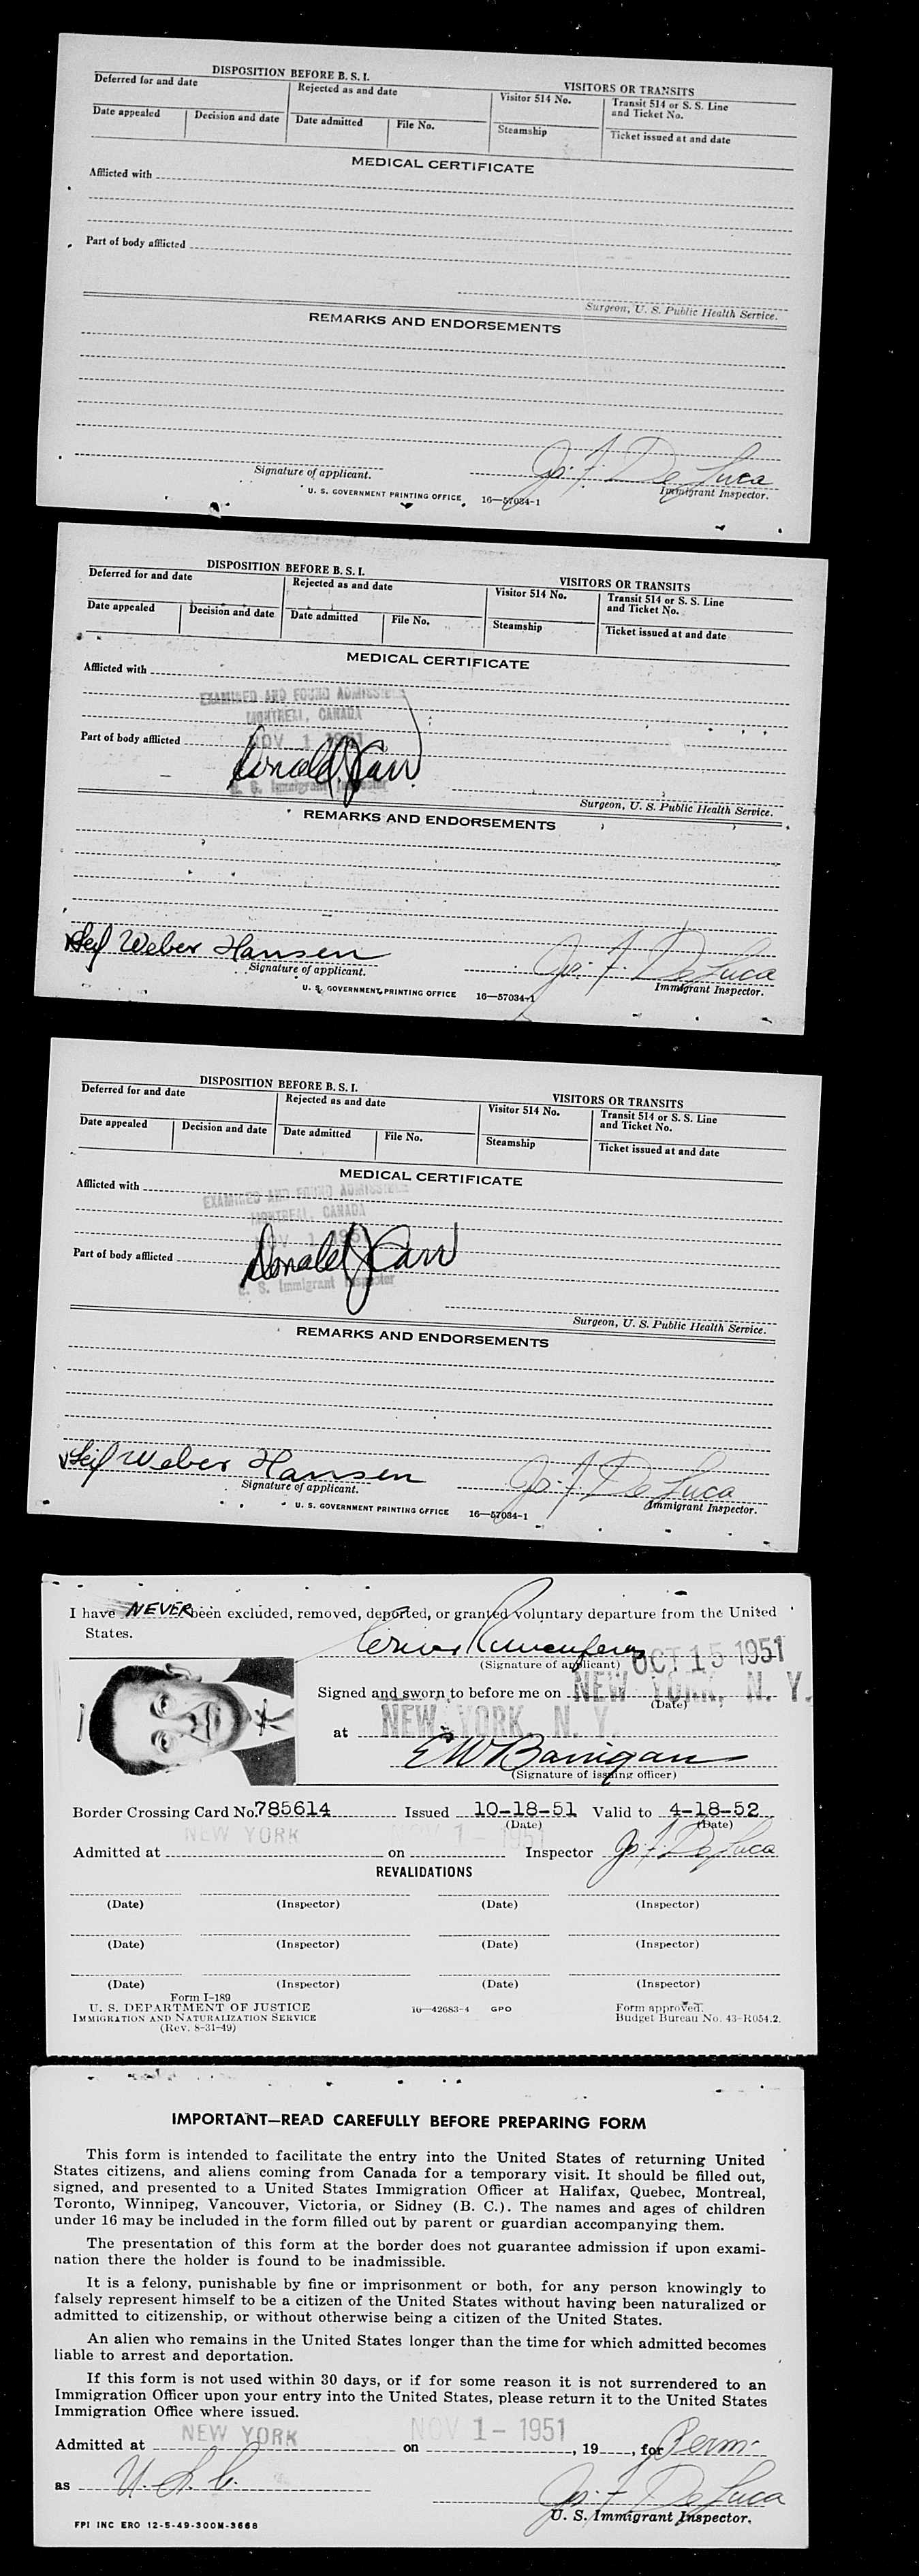 DISPOSITION BEFORE B. S. I.
VISITORS OR TRANSITS
Deferred for and date
Rejected as and date
Visitor 514 No.
Transit 514 or S. S. Line and Ticket No.
Date appealed
Decision and date
Date admitted
File No.
Steamship
Ticket issued at and date
MEDICAL CERTIFICATE
Afflicted with
Part of body afflicted
Surgeon, U. S. Public Health Service.
REMARKS AND ENDORSEMENTS
Jos. F. De Luca
Signature of applicant.
Immigrant Inspector.
U. S. GOVERNMENT PRINTING OFFICE 16—57034-1
DISPOSITION BEFORE B. S. I.
VISITORS OR TRANSITS
Deferred for and date
Rejected as and date
Visitor 514 No.
Transit 514 or S. S. Line and Ticket No.
Date appealed
Decision and date
Date admitted
File No.
Steamship
Ticket issued at and date
MEDICAL CERTIFICATE
Afflicted with
EXAMINED AND FOUND ADMISSIBLE
MONTREAL, CANADA
NOV 1 1951
Part of body afflicted
Donald J Carr
U. S. Immigrant Inspector
Surgeon, U. S. Public Health Service.
REMARKS AND ENDORSEMENTS
Leif Weber Hansen
Jos. F. De Luca
Signature of applicant.
Immigrant Inspector.
U. S. GOVERNMENT PRINTING OFFICE 16—57034-1
DISPOSITION BEFORE B. S. I.
VISITORS OR TRANSITS
Deferred for and date
Rejected as and date
Visitor 514 No.
Transit 514 or S. S. Line and Ticket No.
Date appealed
Decision and date
Date admitted
File No.
Steamship
Ticket issued at and date
MEDICAL CERTIFICATE
Afflicted with
EXAMINED AND FOUND ADMISSIBLE
MONTREAL, CANADA
NOV 1 1951
Part of body afflicted
Donald J Carr
U. S. Immigrant Inspector
Surgeon, U. S. Public Health Service.
REMARKS AND ENDORSEMENTS
Leif Weber Hansen
Jos. F. De Luca
Signature of applicant.
Immigrant Inspector.
U. S. GOVERNMENT PRINTING OFFICE 16—57034-1
I have NEVER been excluded, removed, deported, or granted voluntary departure from the United
States.
(Signature of applicant)
OCT 15 1951
Signed and sworn to before me on NEW YORK, N. Y.
(Date)
at NEW YORK, N. Y.
E W Banigan
(Signature of issuing officer)
Border Crossing Card No. 785614 Issued 10-18-51 Valid to 4-18-52
(Date) (Date)
Admitted at NEW YORK on NOV 1 - 1951 Inspector Jos. F. De Luca
REVALIDATIONS
(Date) (Inspector) (Date) (Inspector)
(Date) (Inspector) (Date) (Inspector)
(Date) (Inspector) (Date) (Inspector)
Form I-189
U. S. DEPARTMENT OF JUSTICE
IMMIGRATION AND NATURALIZATION SERVICE
(Rev. 8-31-49)
16—42683-4 GPO
Form approved.
Budget Bureau No. 43-R054.2.
IMPORTANT—READ CAREFULLY BEFORE PREPARING FORM
This form is intended to facilitate the entry into the United States of returning United
States citizens, and aliens coming from Canada for a temporary visit. It should be filled out,
signed, and presented to a United States Immigration Officer at Halifax, Quebec, Montreal,
Toronto, Winnipeg, Vancouver, Victoria, or Sidney (B. C.). The names and ages of children
under 16 may be included in the form filled out by parent or guardian accompanying them.
The presentation of this form at the border does not guarantee admission if upon exami-
nation there the holder is found to be inadmissible.
It is a felony, punishable by fine or imprisonment or both, for any person knowingly to
falsely represent himself to be a citizen of the United States without having been naturalized or
admitted to citizenship, or without otherwise being a citizen of the United States.
An alien who remains in the United States longer than the time for which admitted becomes
liable to arrest and deportation.
If this form is not used within 30 days, or if for some reason it is not surrendered to an
Immigration Officer upon your entry into the United States, please return it to the United States
Immigration Office where issued.
Admitted at NEW YORK on NOV 1 - 1951, 19, for Perm.
as U. S. C.
Jos. F. De Luca
U. S. Immigrant Inspector.
FPI INC ERO 12-5-49-300M-3668